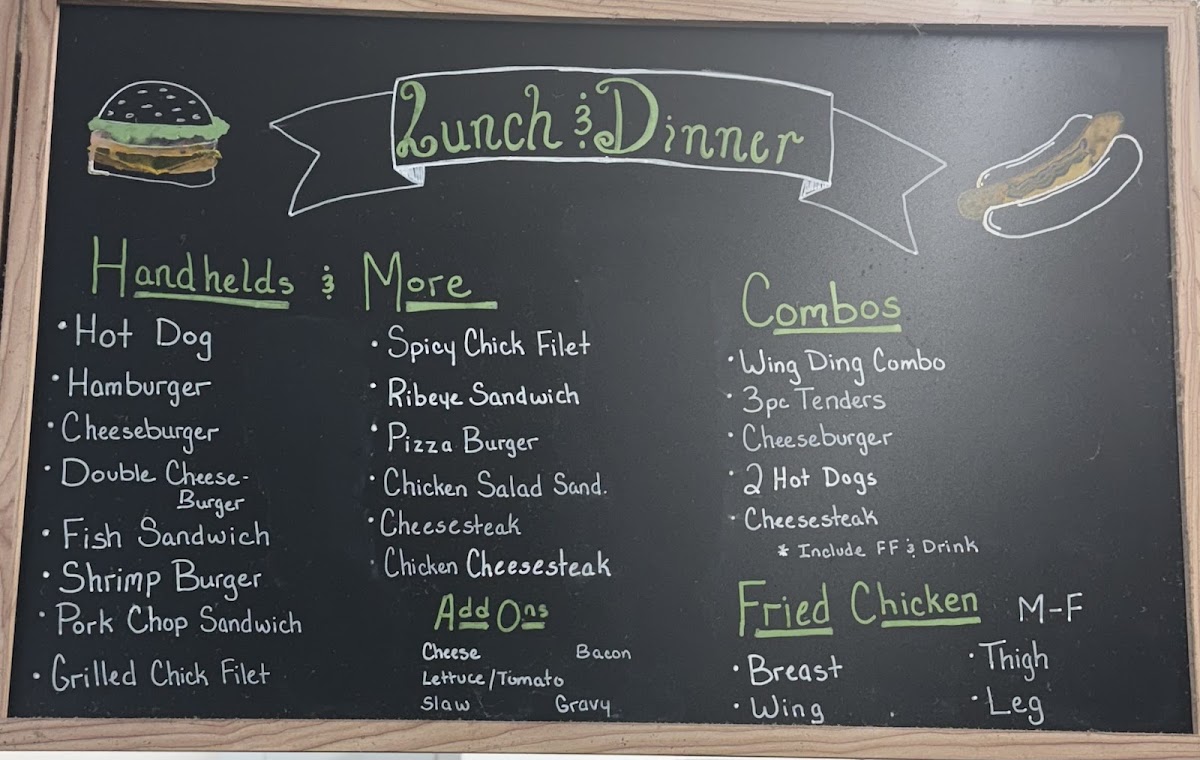 Lunch & Dinner
Handhelds & More
• Hot Dog
• Hamburger
• Cheeseburger
• Double Cheese-
Burger
• Fish Sandwich
• Shrimp Burger
• Pork Chop Sandwich
• Grilled Chick Filet
• Spicy Chick Filet
• Ribeye Sandwich
• Pizza Burger
• Chicken Salad Sand.
• Cheesesteak
• Chicken Cheesesteak
Add Ons
Cheese Bacon
Lettuce/Tomato
Slaw Gravy
Combos
• Wing Ding Combo
• 3pc Tenders
• Cheeseburger
• 2 Hot Dogs
• Cheesesteak
* Include FF & Drink
Fried Chicken M-F
• Breast • Thigh
• Wing • Leg